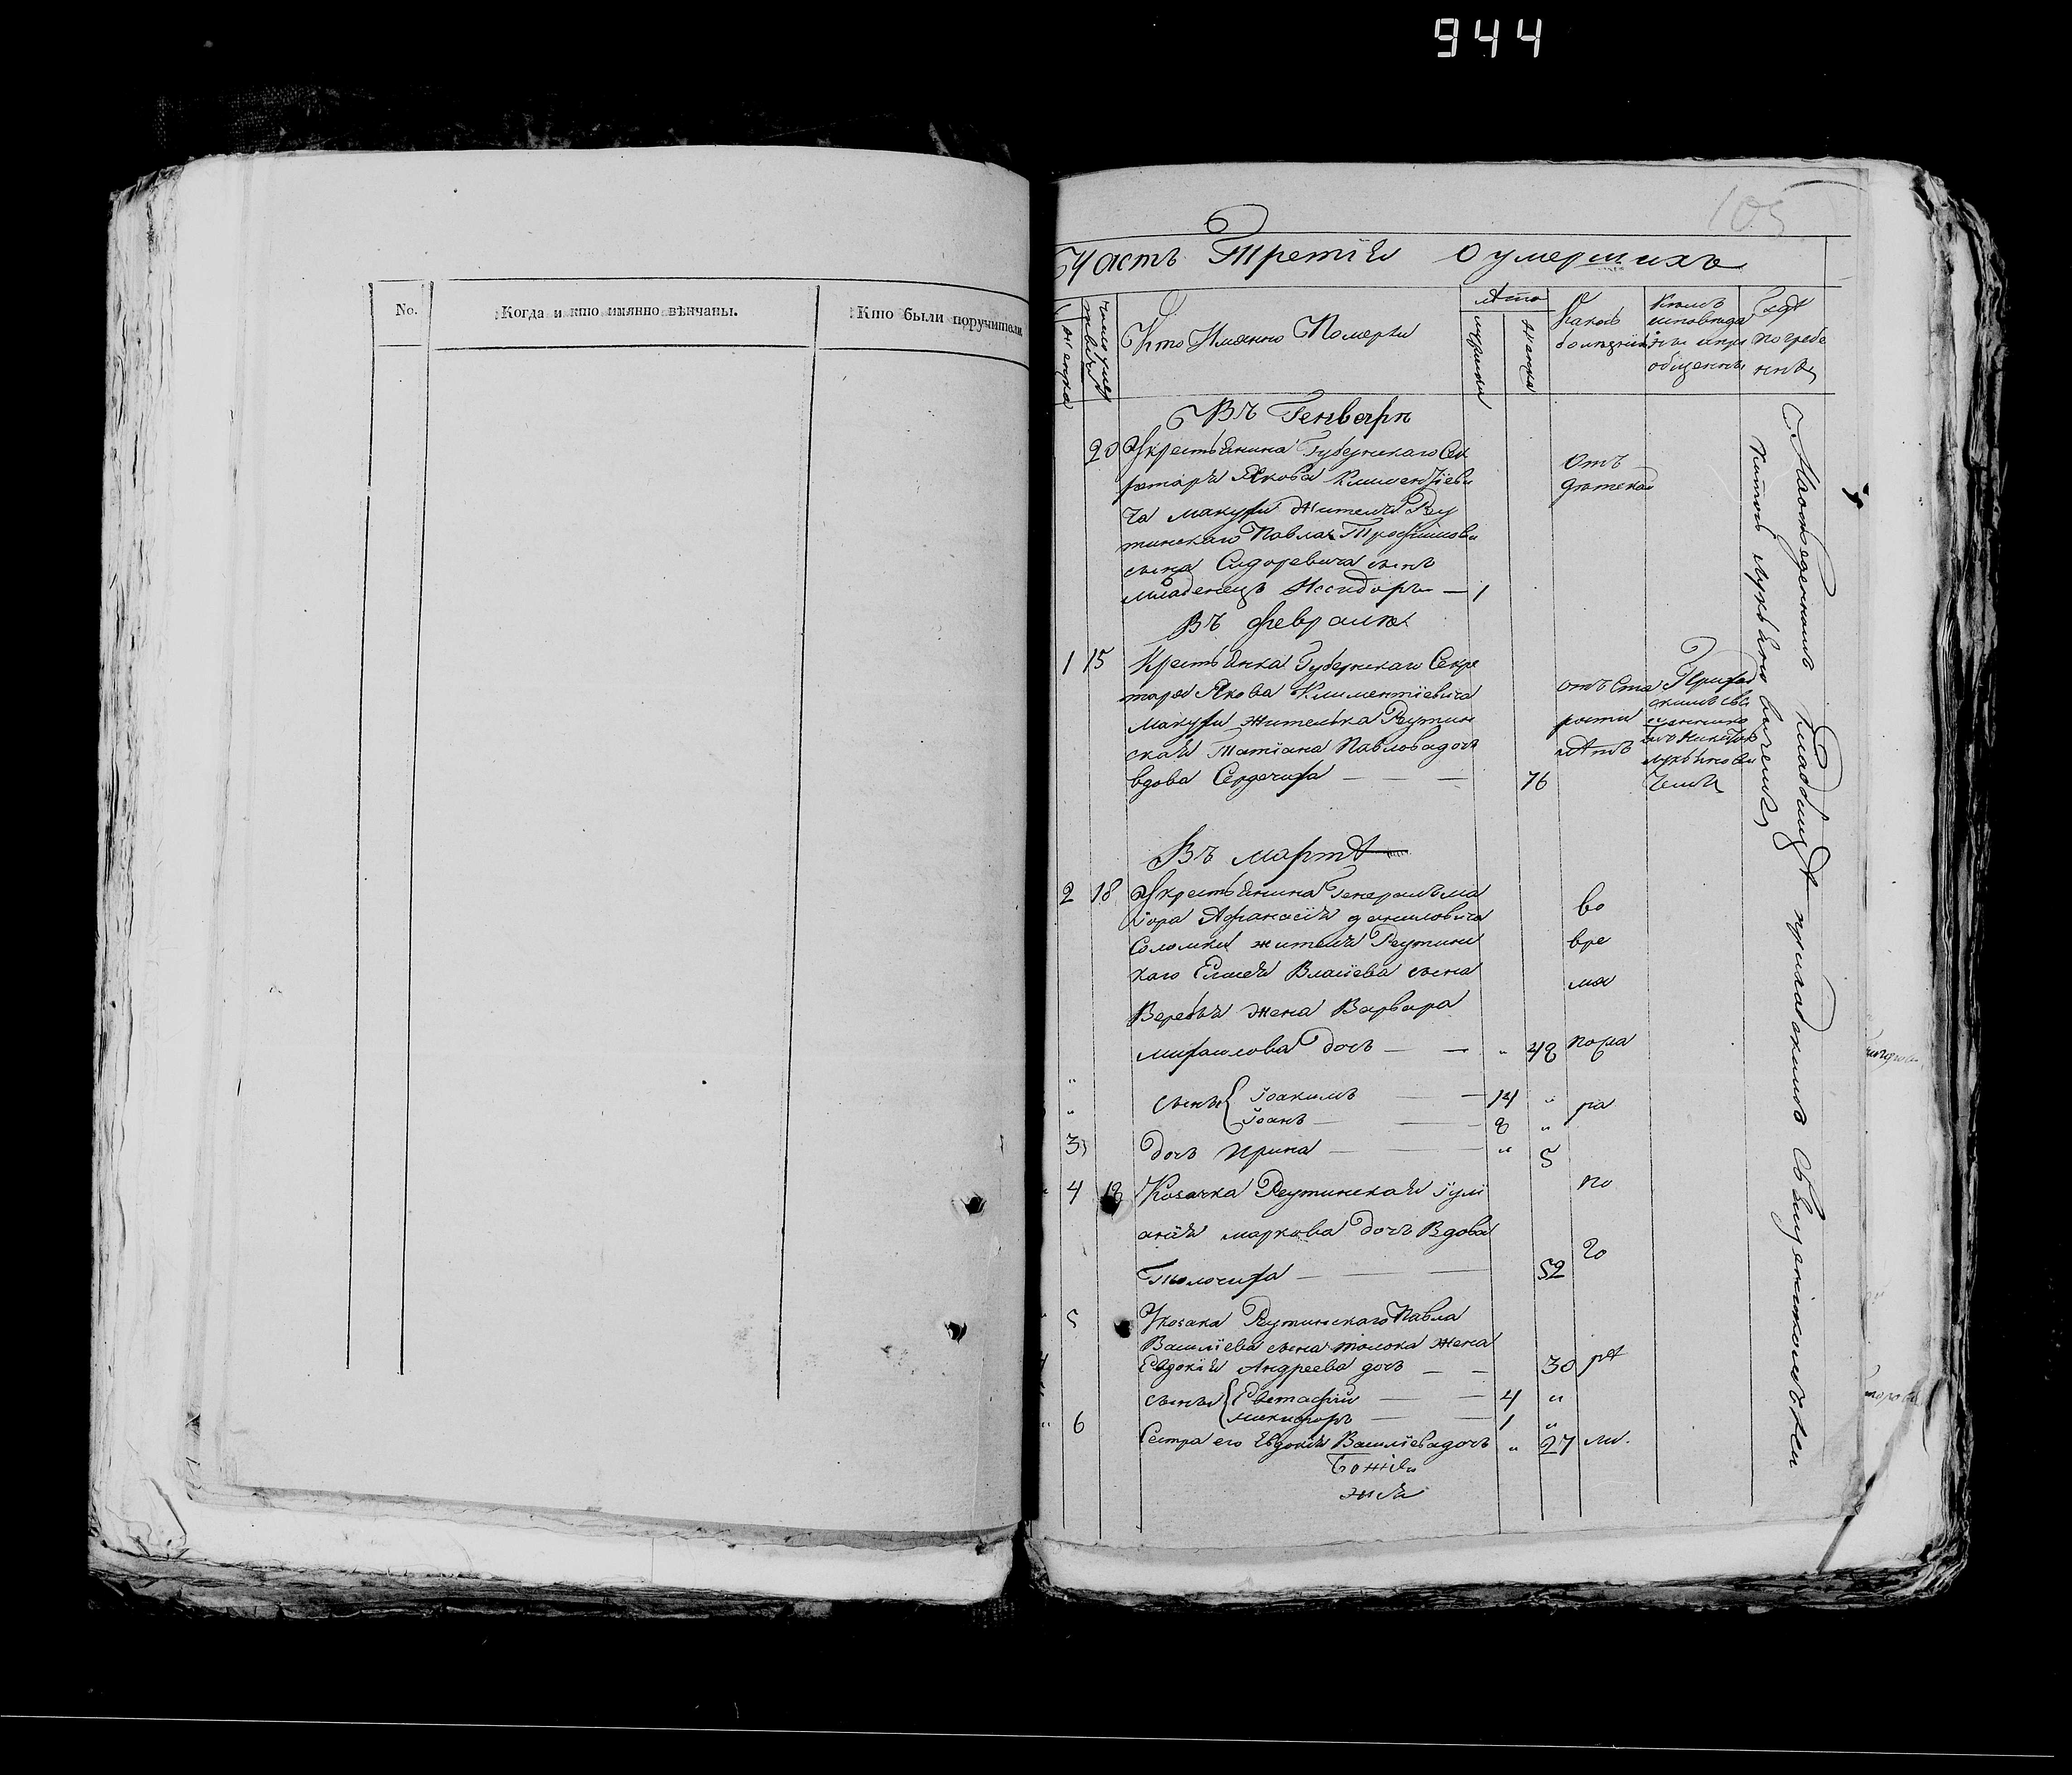 944
105
No.
Когда и кто имянно вѣнчаны.
Кто были поручители
Часть Третія о умершихъ
Кто Имянно Померли
Лѣта
мужска
женска
женска
Какою болѣзнію
Кѣмъ исповѣда
общенны
Гдѣ погребе
ны
Въ Генварѣ
20 Укрестьянина Губернскаго Сек
ретаря Якова Климентіеви
ча Макухи жителя Реу
тинскаго Павла Трофимова
сына Сидоревича сынъ
младенецъ Исидоръ — 1
Отъ
Въ Февралѣ
1 15 Крестьянка Губернскаго Секре
таря Якова Климентіевича
Макухи жителька Реутин
ская Татіана Павлова дочь
вдова Сердечиха — — — 76
отъ ста
рости
лѣтъ
Приход
скимъ свя
щеннико
Въ Мартѣ
2 18 Укрестьянина Генералъ ма
іора Афанасія Даниловича
Соломки жителя Реутинс
каго Елисея Власіева сына
Веребья жена Варвара
Михаилова дочь — — " 48
сыны { Іоакимъ — — 14 "
Іоанъ — — 8 "
3 дочь Ирина — — " 5
4 18 Козачка Реутинская Іулі
анія Маркова дочь Вдова
Толочиха — — — 52
5 Укозака Реутинскаго Павла
Василіева сына Толока жена
Евдокія Андреева дочь — — 30
сыны { Евстафій — — 4 "
Никифоръ — — 1 "
" 6 Сестра его Евдокія Василіева дочь " 27
во
вре
мя
пожа
ра
по
го
рѣ
ли.
На отведенномъ кладбищѣ приходскимъ Священникомъ